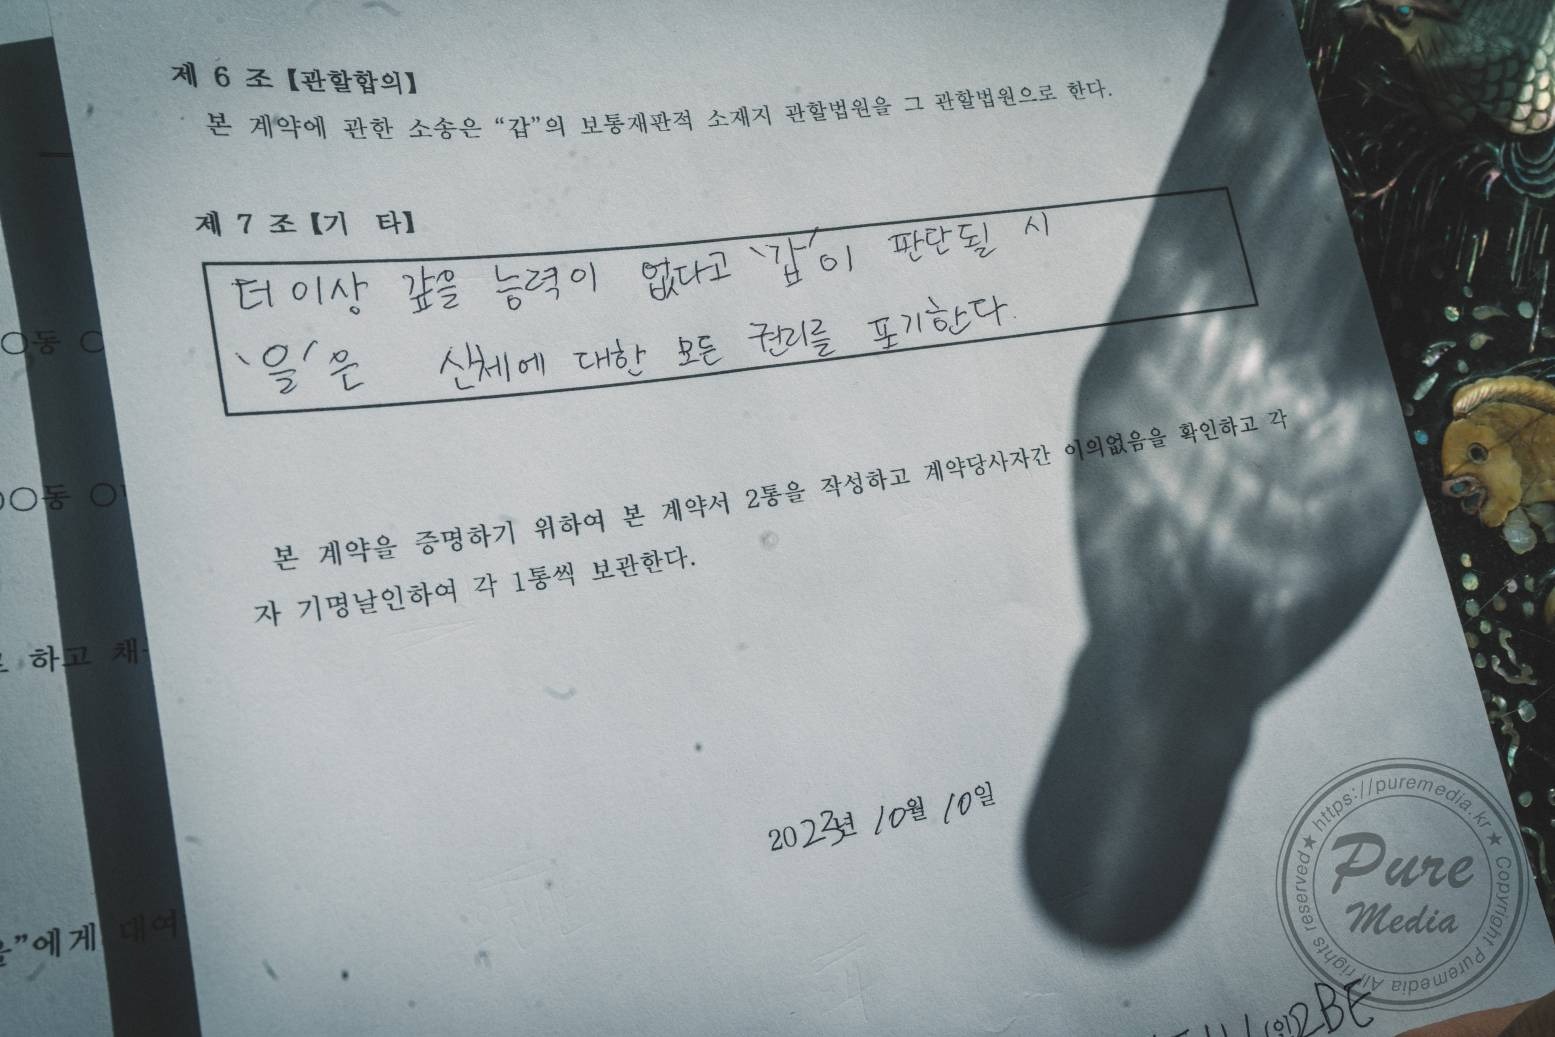 제 6 조【관할합의】
본 계약에 관한 소송은 “갑”의 보통재판적 소재지 관할법원을 그 관할법원으로 한다.
제 7 조【기 타】
더 이상 갚을 능력이 없다고 '갑'이 판단될 시
'을'은 신체에 대한 모든 권리를 포기한다.
본 계약을 증명하기 위하여 본 계약서 2통을 작성하고 계약당사자간 이의없음을 확인하고 각
자 기명날인하여 각 1통씩 보관한다.
2023년 10월 10일
동
동
하고 채
”에게 대여
https://puremedia.kr
Pure
Media
Copyright Puremedia All rights reserved